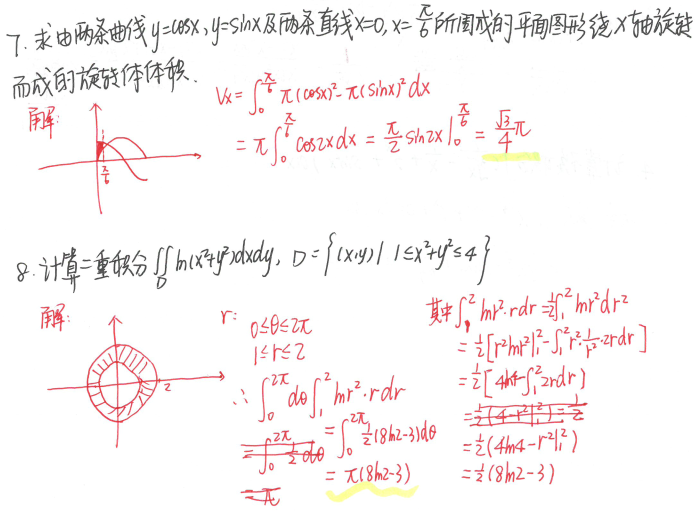 7. 求由两条曲线y=cosx, y=sinx及两条直线x=0, x=π/6所围成的平面图形绕x轴旋转
而成的旋转体体积.
解:
Vx=∫₀^{π/6} π(cosx)²-π(sinx)²dx
=π∫₀^{π/6} cos2xdx = π/2 sin2x|₀^{π/6} = √3/4 π
π/6
8. 计算二重积分∬_D ln(x²+y²)dxdy, D={(x,y)| 1≤x²+y²≤4}
解:
2
r:
0≤θ≤2π
1≤r≤2
∴ ∫₀^{2π}dθ∫₁² lnr²·rdr
=∫₀^{2π} 1/2 dθ
=π
=∫₀^{2π} 1/2(8ln2-3)dθ
=π(8ln2-3)
其中∫₁² lnr²·rdr=1/2∫₁² lnr²dr²
=1/2[r²lnr²|₁²-∫₁² r²·1/r²·2rdr]
=1/2[4ln4-∫₁² 2rdr)
=1/2(4-r²|₁²)=1/2
=1/2(4ln4-r²|₁²)
=1/2(8ln2-3)